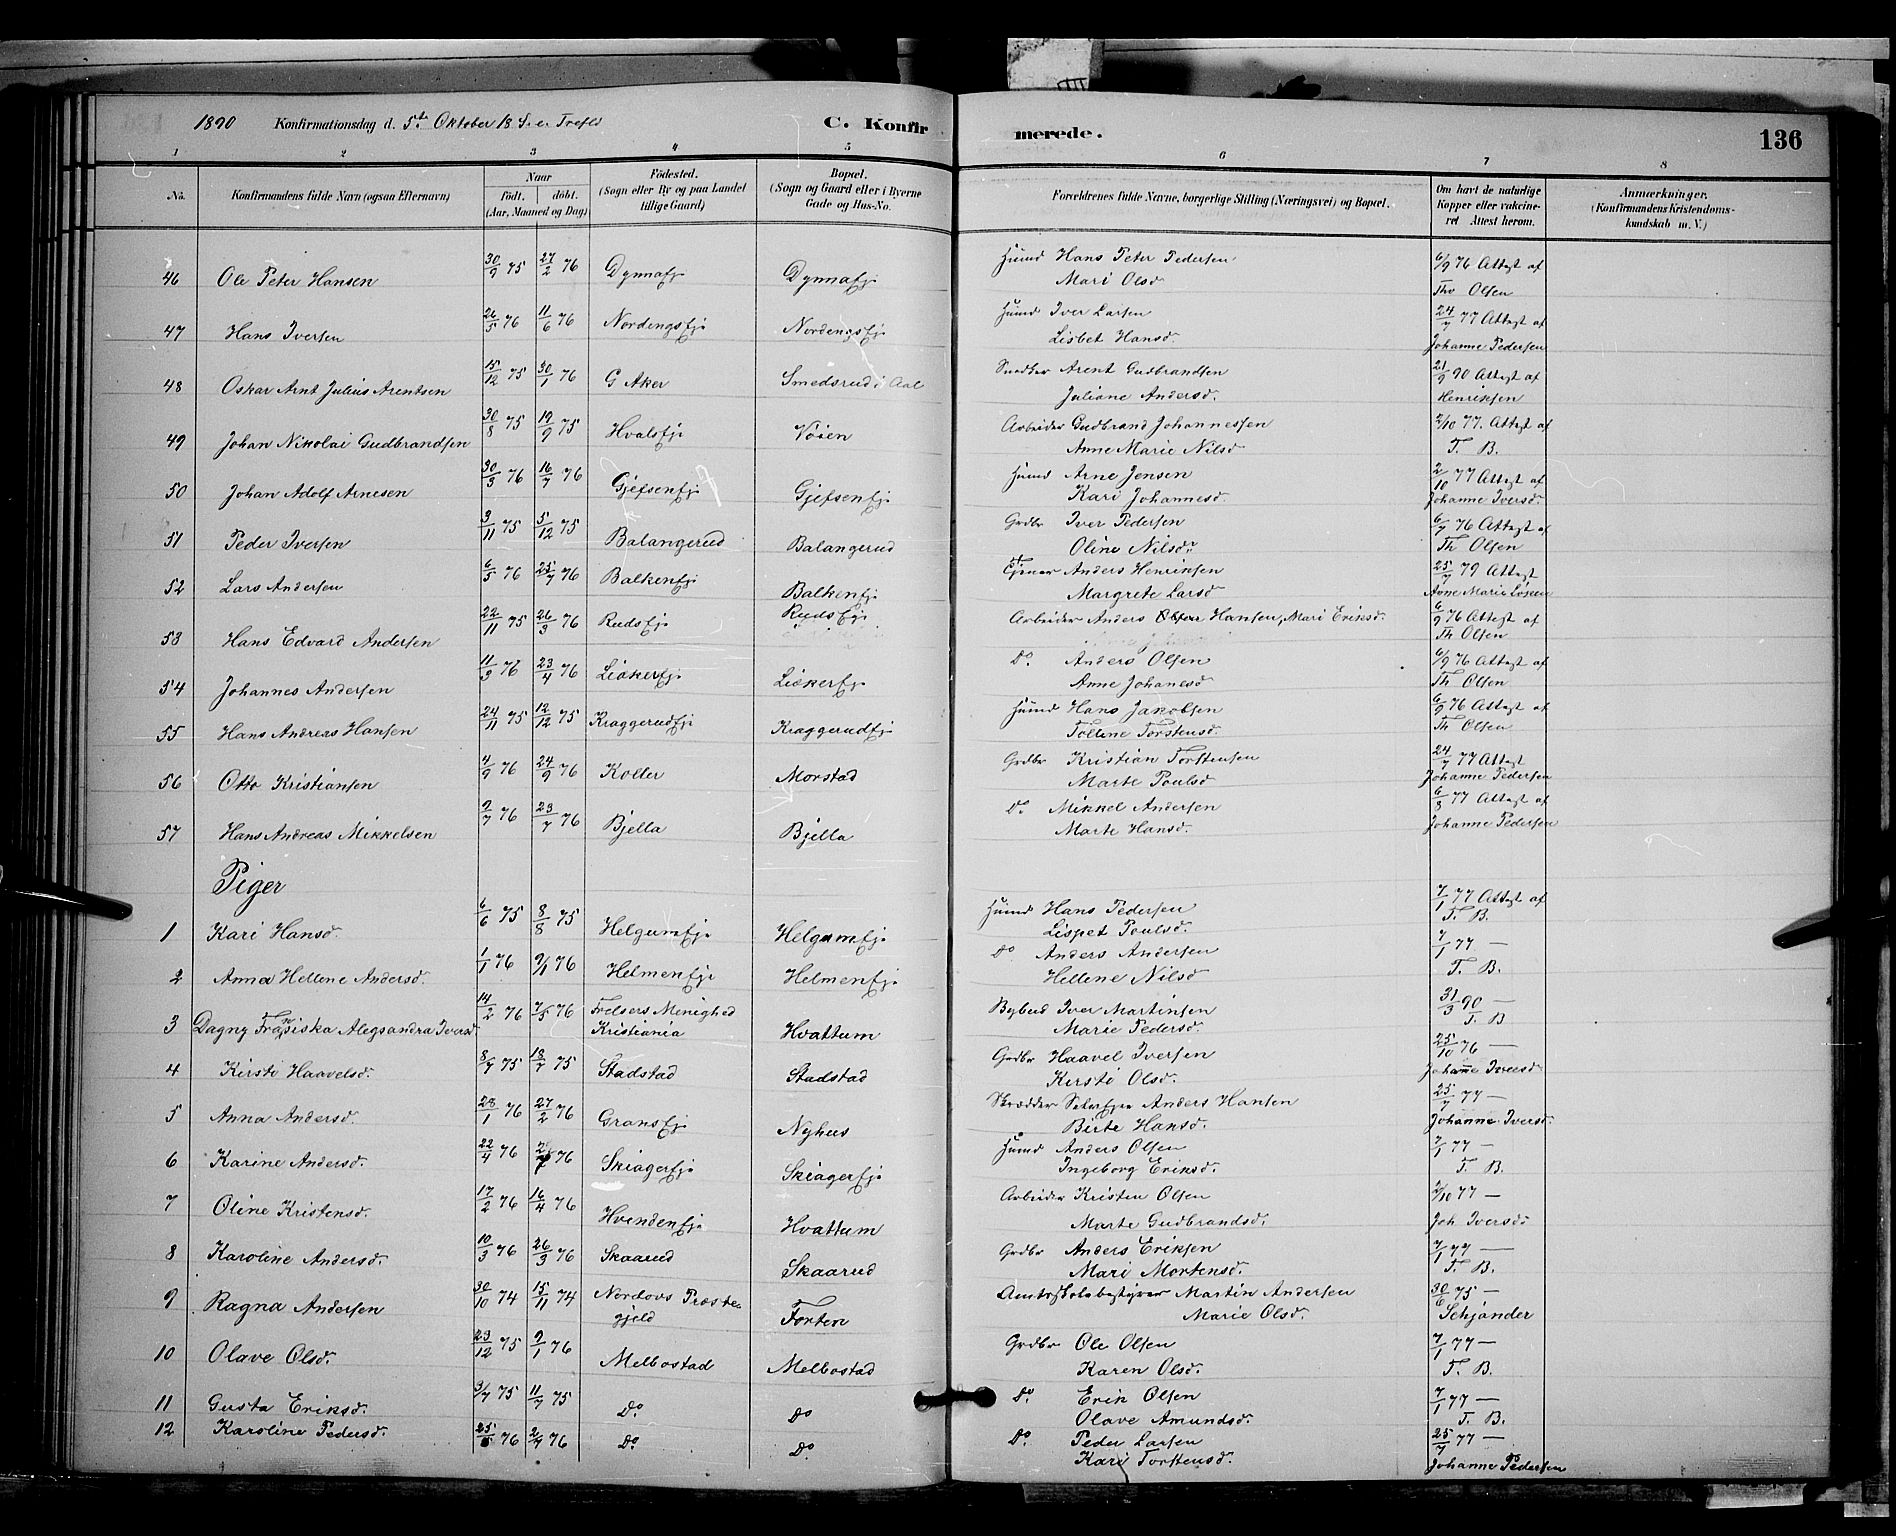 1890 Konfirmationsdag d. 5t. Oktober 18 S. e. Trefld C. Konfir
merede. 136
1 2 3 4 5 6 7 8
No. Konfirmandens fulde Navn (ogsaa Efternavn) Naar født. døbt. (Aar, Maaned og Dag) Fødested. (Sogn eller By og paa Landet tillige Gaard) Bopæl. (Sogn og Gaard eller i Byerne Gade og Hus-No. Forældrenes fulde Navne, borgerlige Stilling (Næringsvei) og Bopæl. Om havt de naturlige Kopper eller vakcineret Attest herom. Anmærkninger. (Konfirmandens Kristendomskundskab m. V.)
46 Ole Peter Hansen 30/9 75 27/2 76 Dynnaej. Dynnaej. Husmd Hans Peter Pedersen 6/9 76 Attest af
Mari Olsd Tho Olsen
47 Hans Iversen 26/5 76 11/6 76 Nordengsej. Nordengsej. Husmd Iver Larsen 24/7 77 Attest af
Lisbet Hansd. Johanne Pedersen
48 Oskar Arnt Julius Arentsen 15/12 75 30/1 76 G Aker Smedsrud i Aal Snedker Arent Gudbrandsen 21/9 90 Attest af
Juliane Andersd. Henriksen
49 Johan Nikolai Gudbrandsen 30/8 75 19/9 75 Hvalsej. Vøien Arbeider Gudbrand Johannessen 2/10 77. Attest af
Anne Marie Nilsd T. B.
50 Johan Adolf Arnesen 30/3 76 16/7 76 Gjefsenej. Gjefsenej. Husmd Arne Jensen 2/10 77 Attest af
Kari Johannesd. Johanne Iversd.
51 Peder Iversen 3/11 75 5/12 75 Balangerud Balangerud Grdbr Iver Pedersen 6/7 76 Attest af
Oline Nilsd. Th Olsen
52 Lars Andersen 6/5 76 25/7 76 Balkenej. Balkenej. Tjener Anders Henriksen 25/7 79 Attest
Margrete Larsd Anne Marie Løken
53 Hans Edvard Andersen 22/11 75 26/3 76 Rudsej. Rudsej. Arbeider Anders Hansen, Mari Eriksd. 6/9 76 Attest af
Th Olsen
54 Johannes Andersen 11/3 76 23/4 76 Liökerej. Liökerej. Do. Anders Olsen 6/9 76 Attest af
Anne Johanesd Th Olsen
55 Hans Andreas Hansen 24/11 75 12/12 75 Kraggerudej. Kraggerudej. Husmd Hans Jakobsen 6/9 76 Attest af
Tolline Torstensd. Th Olsen
56 Otto Kristiansen 4/9 76 24/9 76 Koller Morstad Grdbr Kristian Torstensen 24/7 77 Attest af
Marte Poulsd Johanne Pedersen
57 Hans Andreas Mikkelsen 2/7 76 23/7 76 Bjella Bjella Do Mikkel Andersen 6/8 77 Attest af
Marte Hansd. Johanne Pedersen
Piger
1 Kari Hansd. 6/6 75 8/8 75 Helgumej. Helgumej. Husmd Hans Pedersen 7/1 77 Attest af
Lispet Poulsd. T. B.
2 Anna Hellene Andersd. 1/1 76 9/1 76 Helmenej. Helmenej. Do Anders Andersen 7/1 77 —
Hellene Nilsd T. B.
3 Dagny Fransiska Alegsandra Iversd 14/2 76 7/5 76 Frelsers Menighed Kristiania Hvattum Bybud Iver Martinsen 31/3 90 —
Marie Pedersd. T. B
4 Kirsti Haavelsd. 8/7 75 18/7 75 Stadstad Stadstad Grdbr Haavel Iversen 25/10 76 —
Kersti Olsd. Johanne Iversd
5 Anna Andersd. 28/1 76 27/2 76 Gransej. Nyhus Skrædder Anders Hansen 25/7 77 —
Birte Hansd. Johanne Iversd.
6 Karine Andersd. 22/4 76 76 Skiagerej. Skiagerej. Husmd Anders Olsen 7/1 77 —
Ingeborg Eriksd. T. B.
7 Oline Kristensd. 17/2 76 16/4 76 Hvindenej. Hvattum Arbeider Kristen Olsen 2/10 77 —
Marte Gudbrandsd. Joh Iversd.
8 Karoline Andersd. 10/3 76 26/3 76 Skaarud Skaarud Grdbr Anders Eriksen 7/1 77 —
Mari Mortensd. T. B.
9 Ragna Andersen 30/10 74 15/11 74 Nordovs Prestegjeld Forten Amtsskolebestyrer Martin Andersen 30/6 75 —
Marie Olsd. Schjander
10 Olave Olsd. 23/12 75 9/1 76 Melbostad Melbostad Grdbr Ole Olsen 7/1 77 —
Karen Olsd. T. B.
11 Gusta Eriksd. 3/7 75 11/7 75 Do. Do Do. Erik Olsen 7/1 77 —
Olave Amundsd. T. B.
12 Karoline Pedersd. 76 2/7 76 Do. Do. Do. Peder Larsen 25/7 77 —
Kari Torstensd. Johanne Pedersen